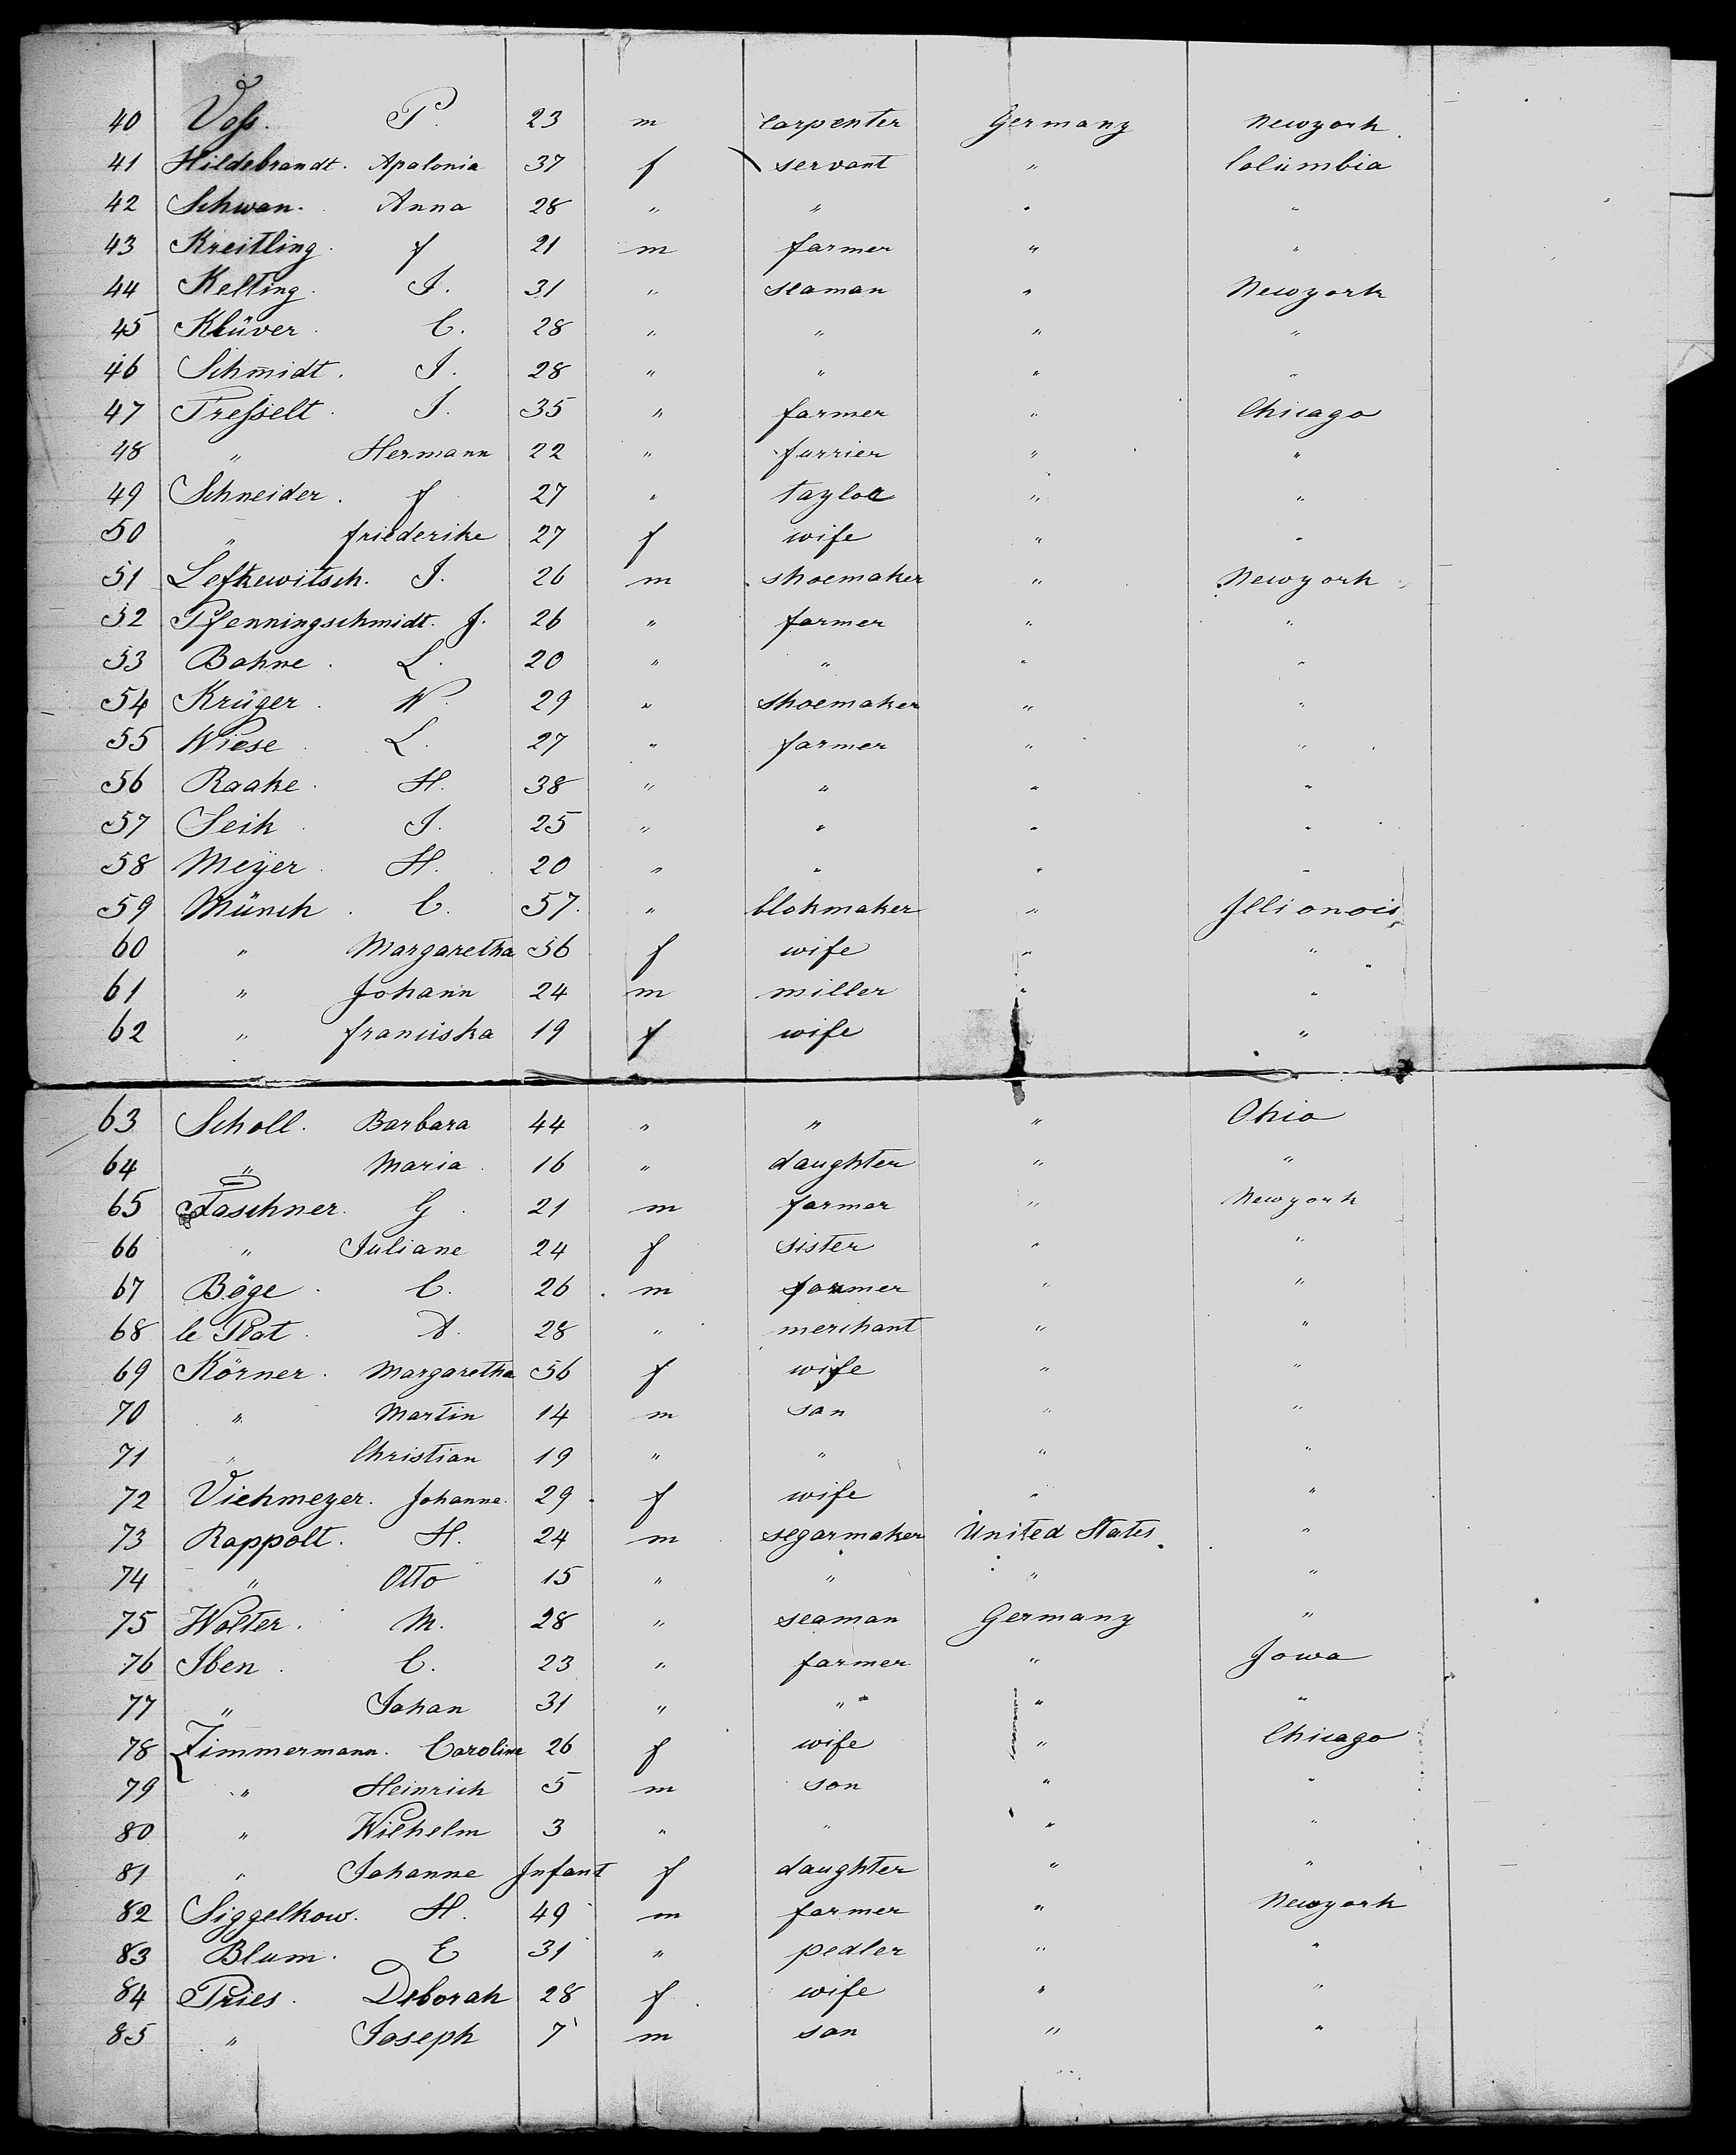 40 Voß. P. 23 m carpenter Germany Newyork
41 Hildebrandt. Apalonia 37 f servant " Columbia
42 Schwan. Anna 28 " " " "
43 Kreitling. f 21 m farmer " "
44 Kelting. J. 31 " seaman " Newyork
45 Klüver. C. 28 " " " "
46 Schmidt. J. 28 " " " "
47 Treßelt. J. 35 " farmer " Chicago
48 " Hermann 22 " furrier " "
49 Schneider. f 27 " taylor " "
50 " friederike 27 f wife " "
51 Lefkewitsch. J. 26 m shoemaker " Newyork
52 Pfenningschmidt. J. 26 " farmer " "
53 Bohne. L. 20 " " " "
54 Krüger. W. 29 " shoemaker " "
55 Wiese. L. 27 " farmer " "
56 Raake. H. 38 " " " "
57 Seik. J. 25 " " " "
58 Meÿer. H. 20 " " " "
59 Münch. C. 57. " blokmaker " Illionois
60 " Margaretha 56 f wife " "
61 " Johann 24 m miller " "
62 " franciska 19 f wife "
63 Scholl. Barbara 44 " " " Ohio
64 " Maria. 16 " daughter " "
65 Taschner. G. 21 m farmer " Newyork
66 " Juliane 24 f sister " "
67 Böge. C. 26. m farmer " "
68 le Plat. A. 28 " merchant " "
69 Körner. Margaretha 56 f wife " "
70 " Martin 14 m son " "
71 " Christian 19 " " " "
72 Viehmeyer. Johanne. 29. f wife " "
73 Rappolt. H. 24 m segarmaker United States. "
74 " Otto 15 " " " "
75 Wolter. M. 28 " seaman Germany "
76 Iben. C. 23 " farmer " Jowa
77 " Johan 31 " " " "
78 Zimmermann. Caroline 26 f wife " Chicago
79 " Heinrich 5 m son " "
80 " Wilhelm 3 " " " "
81 " Johanne Infant f daughter " "
82 Siggelkow. H. 49 m farmer " Newyork
83 Blum. E 31 " pedler " "
84 Pries. Deborah 28 f. wife " "
85 " Joseph 7 m son " "